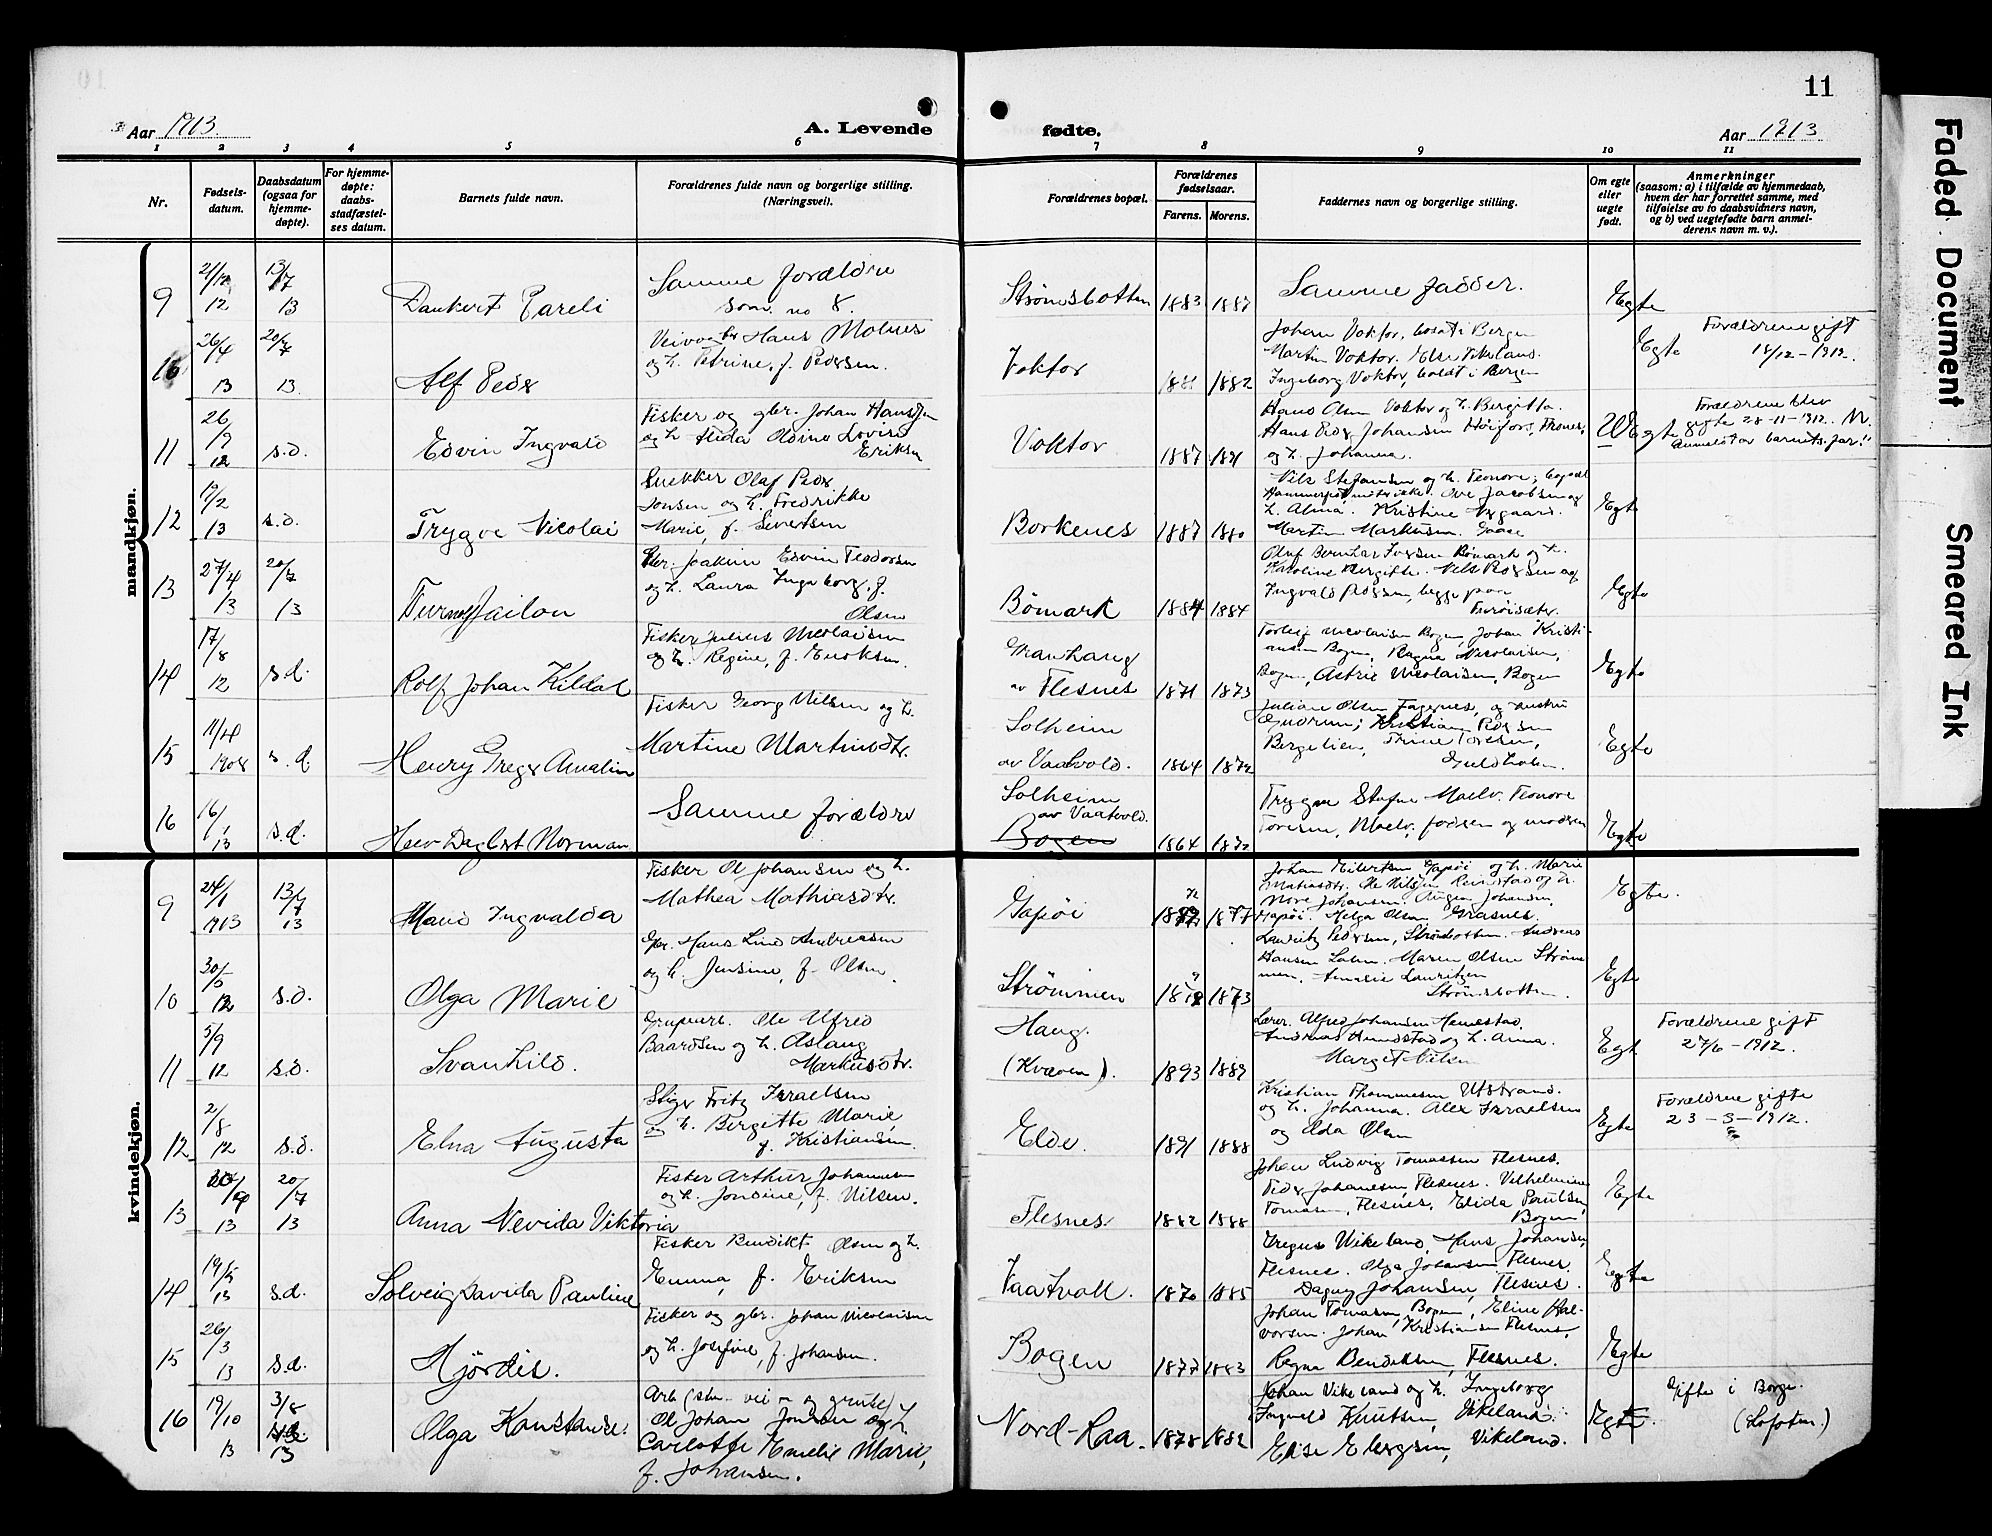 11
Aar 1913.
A. Levende fødte.
Aar 1913
1 2 3 4 5 6 7 8 9 10 11
Nr.
Fødsels-
datum.
Daabsdatum
(ogsaa for
hjemme-
døpte).
For hjemme-
døpte:
daabs-
stadfæstel-
ses datum.
Barnets fulde navn.
Forældrenes fulde navn og borgerlige stilling.
(Næringsvei).
Forældrenes bopæl.
Forældrenes
fødselsaar.
Farens. Morens.
Faddernes navn og borgerlige stilling.
Om egte
eller
uegte
født.
Anmerkninger
(saasom: a) i tilfælde av hjemmedaab,
hvem der har forrettet samme, med
tilføielse av to daabsvidners navn,
og b) ved uegtefødte barn anmel-
derens navn m. v.).
mandkjøn.
9 21/12 12 13/7 13 Dankert Pareli
Samme forældre
som no 8.
Strømsbotten 1883 1887
Samme fadder.
Egte
10 26/4 13 20/7 13. Alf Peder
Hans Molnes
og h. Petrine, f. Pedersen.
Voktor 1881 1882
Johan Voktor, bosat i Bergen
Martin Voktor. Else Vikeland.
Ingeborg Voktor, bosat i Bergen
Egte
Forældrene gift
18/12-1912.
11 26/9 12 s.d. Edvin Ingvald
Fisker og gbr. Johan Hansen
og h. Alida Oldine Lovise
Eriksen
Voktor 1887 1891
Hans Olsen Voktor og h. Bergitta.
Hans Peder Johansen
og h. Johanna.
Uegte
Forældrene blev
gifte 28-11-1912.
Anmeldt av barnets far.
12 19/2 13 s.d. Trygve Nicolai
Snekker Olaf Peder
Jonsen og h. Fredrikke
Marie, f. Sivertsen
Borkenes 1887 1880
Nils Stefansen og h. Leonore;
Ove Jacobsen og
h. Alma. Kristine Nygaard.
Martin Markussen. Gaare
Egte
13 27/4 13 20/7 13
Gbr. Joakim Edvin Teodorsen
og h. Laura Ingeborg, f.
Olsen
Bømark 1884 1884
Bømark og h.
Karoline Bergitte. Nils Pedersen og
Ingvald Pedersen, begge paa
Egte
14 17/8 12 s.d. Rolf Johan Kildal
Fisker Julius Nicolaisen
og h. Regine, f. Enoksen.
Granhaug
av Flesnes 1871 1873
Torleif Nicolaisen Bogen, Johan Kristi-
ansen Bogen, Ragna Nicolaisen,
Bogen, Astrid Nicolaisen, Bogen
Egte
15 11/4 1908 s.d. Henry Greger Amalius
Fisker Georg Nilsen og h.
Martine Martinsdtr.
Solheim
av Vaatvold. 1864 1872
Julian Olsen Fagernes, og hustru
Gudrun; Kristian Pedersen
Bergelien, Trine Toresen,
Guldholm.
Egte
16 16/1 13 s.d.
Samme forældre
Solheim
av Vaatvold.
Bogen 1864 1872
Trygve Stefansen Maelv. Leonore
Toresen, Maelv, fadren og modren
Egte
kvindekjøn.
9 24/1 1913 13/7 13 Maud Ingvalda
Fisker Ole Johansen og h.
Mathea Mathiasdtr.
Gapøi 1872 1877
Johan Eilertsen Gapøi og h. Marie
Matiasdtr. Ole Nilsen Reinstad og h.
Gapøi. Helga Olsen Grasnes.
Egte.
10 30/5 12 s.d. Olga Marie
Gbr. Hans Lind Andreassen
og h. Jensine, f. Olsen
Strømmen 1879 1873
Lauritz Pedersen, Strømsbotten. Andreas
Hansen Lahn. Maren Olsen Strøm-
men. Amalie Lauritzen
Strømsbotten.
Egte
11 5/9 12 s.d. Svanhild.
Grupearb. Ole Alfred
Baardsen og h. Aslaug
Markusdtr.
Haug.
(Kvæøen). 1893 1889
Lærer. Alfred Johansen Hemestad.
Andreas Hundstad og h. Anna.
Margit Nilsen
Egte
Forældrene gift
27/6-1912.
12 2/8 12 s.d. Elna Augusta
Stiger Fritz Israelsen
og h. Bergitte Marie,
f. Kristiansen.
Elde. 1891 1888
Kristian Thommesen Utstrand.
og h. Johanna. Alex Israelsen
og Alda Olsen
Egte
Forældrene gifte
23-3-1912.
13 20/4 13 20/7 13 Anna Nevida Viktoria
Fisker Arthur Johannesen
og h. Jonsine, f. Nilsen.
Flesnes 1882 1888
Johan Ludvig Tomassen Flesnes.
Peder Johansen, Flesnes. Vilhelmine
Tomasen, Flesnes, Elida Paulsen
Bogen
Egte
14 19/5 13 s.d. Solveig Davida Pauline
Fisker Bendikt Olsen og h.
Emma, f. Eriksen
Vaatvoll. 1870 1885
Gregus Vikeland, Hans Johansen,
Flesnes. Olga Johansen Flesnes.
Dagny Johansen, Flesnes.
Egte
15 26/3 13 s.d. Hjördis.
Fisker og gbr. Johan Nicolaisen
og h. Josefine, f. Johansen.
Bogen 1877 1883
Johan Tomasen, Bogen, Eline Hal-
vorsen. Johan Kristiansen Flesnes,
Regine Bendiksen, Flesnes.
Egte
16 19/10 13 3/8 13 Olga Konstanse.
Arb (stein- vei- og grube)
Ole Johan Jonsen og h.
Carlotte Amalie Marie,
f. Johansen.
Nord-Raa. 1878 1882
Johan Vikeland og h. Ingeborg
Ingvald Knutsen, Vikeland.
Else Elvesen, Vikeland.
Egte.
Gifte i Borge.
(Lofoten.)
Faded Document Smeared Ink